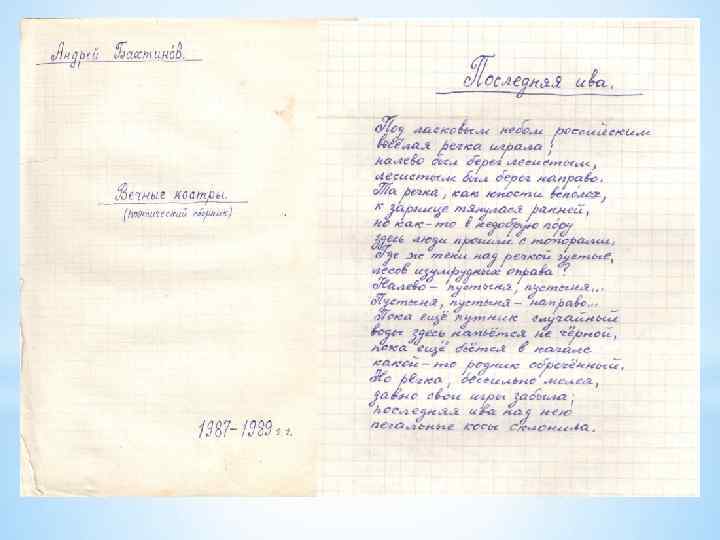 Андрей Бахтинов.
Вечные костры.
(поэтический сборник)
1987-1989 г.г.
Последняя ива.
Под ласковым небом российским
весёлая речка играла;
налево был берег лесистым,
лесистым был берег направо.
Та речка, как юности всполох,
к зарнице тянулася ранней,
но как-то в недобрую пору
здесь люди прошли с топорами.
Где же тени над речкой густые,
лесов изумрудных оправа?
Налево - пустыня, пустыня...
Пустыня, пустыня - направо...
Пока ещё путник случайный
воды здесь напьётся не чёрной,
пока ещё бьётся в начале
какой-то родник обречённый.
Но речка, бессильно молся,
давно свои игры забыла;
последняя ива над нею
печальные косы склонила.